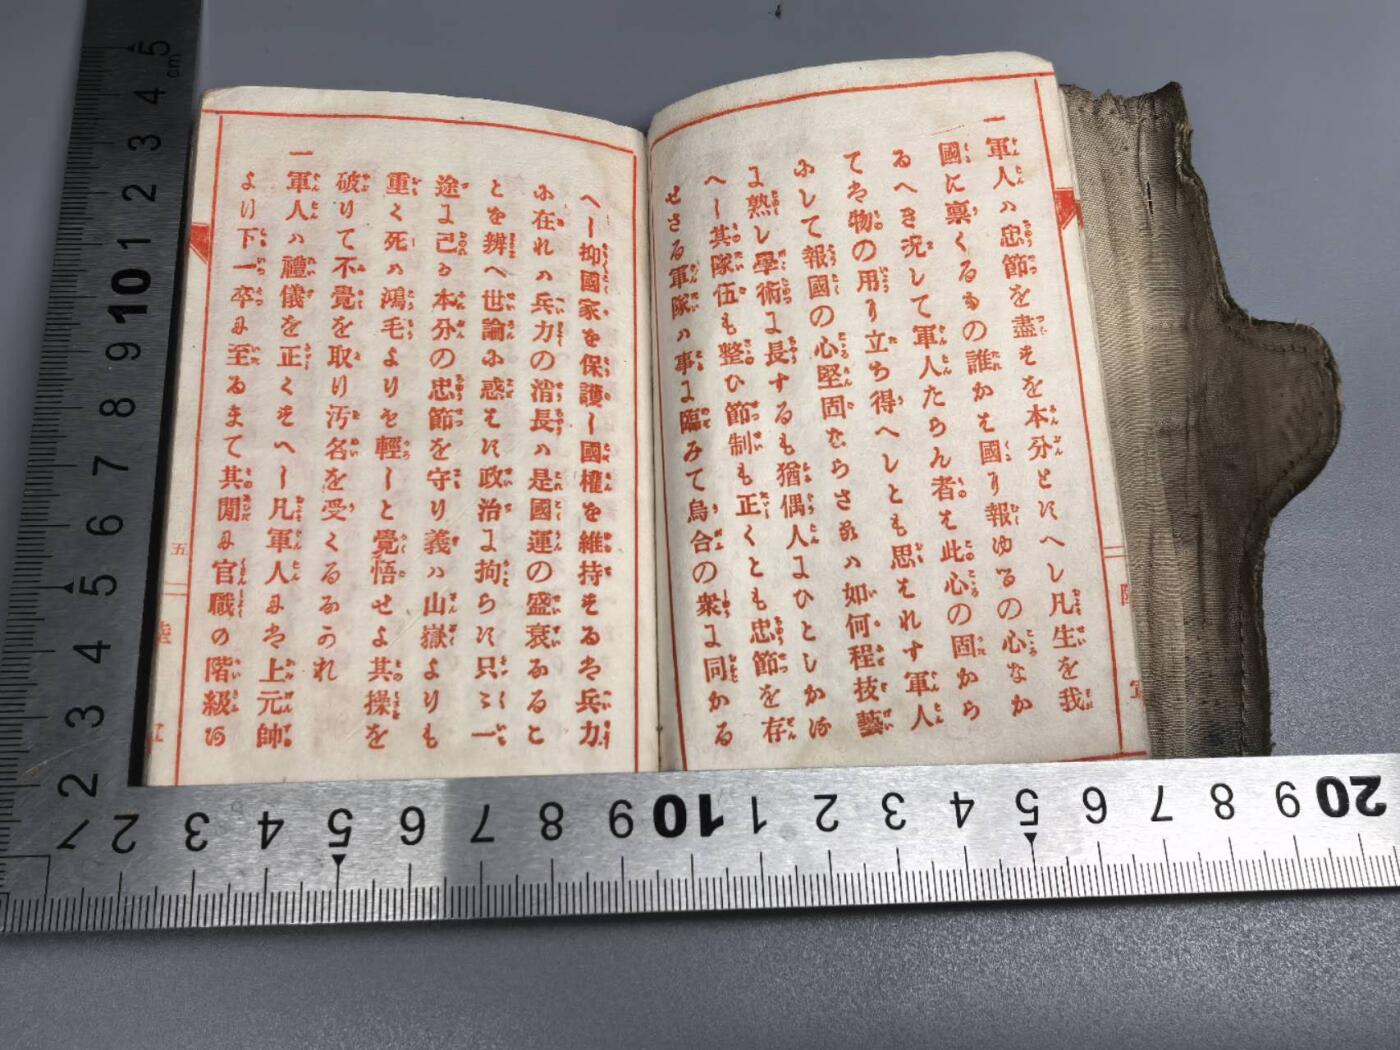 一軍人ハ忠節を盡すを本分とすへし凡生を我
國に稟くるもの誰かは國に報ゆるの心なか
るへき況して軍人たらん者は此心の固から
ては物の用に立ち得へしとも思はれす軍人
にして報國の心堅固ならさるハ如何程技藝
に熟し學術に長するも猶偶人にひとしかる
へし其隊伍も整ひ節制も正くとも忠節を存
せさる軍隊ハ事に臨みて烏合の衆に同かる
へし抑國家を保護し國權を維持するは兵力
に在れハ兵力の消長ハ是國運の盛衰なると
とを辨へ世論に惑はす政治に拘らす只々一
途に己か本分の忠節を守り義ハ山嶽よりも
重く死ハ鴻毛よりも輕しと覺悟せよ其操を
破りて不覺を取り汚名を受くるなかれ
一軍人ハ禮儀を正くすへし凡軍人には上元帥
より下一卒に至るまて其間に官職の階級あ
五
陸
5 cm 4 3 2 1 10 9 8 7 6 5 4 3 2
1 2 3 4 5 6 7 8 9 10 1 2 3 4 5 6 7 8 9 20 2